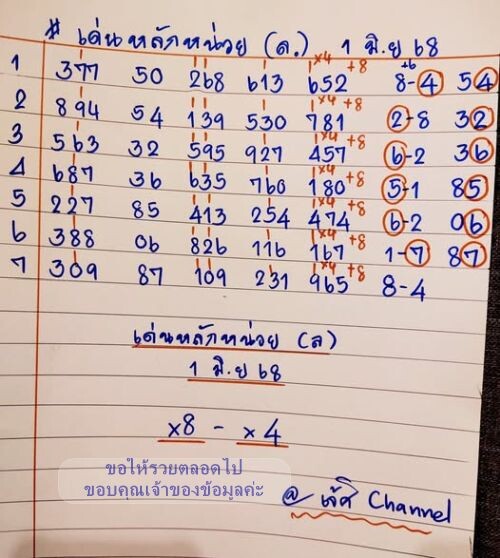 # เด่นหลักหน่วย (ล.) 1 มิ.ย 68
x4 +8 +6
1 377 50 268 613 652 8-4 54
x4 +8
2 894 54 139 530 781 2-8 32
x4 +8
3 563 32 595 927 457 6-2 36
x4 +8
4 687 36 635 760 180 5-1 85
x4 +8
5 227 85 413 254 474 6-2 06
x4 +8
6 388 06 826 116 167 1-7 87
x4 +8
7 309 87 109 231 965 8-4
เด่นหลักหน่วย (ล)
1 มิ.ย 68
x8 - x4
ขอให้รวยตลอดไป
ขอบคุณเจ้าของข้อมูลค่ะ
@ Channel